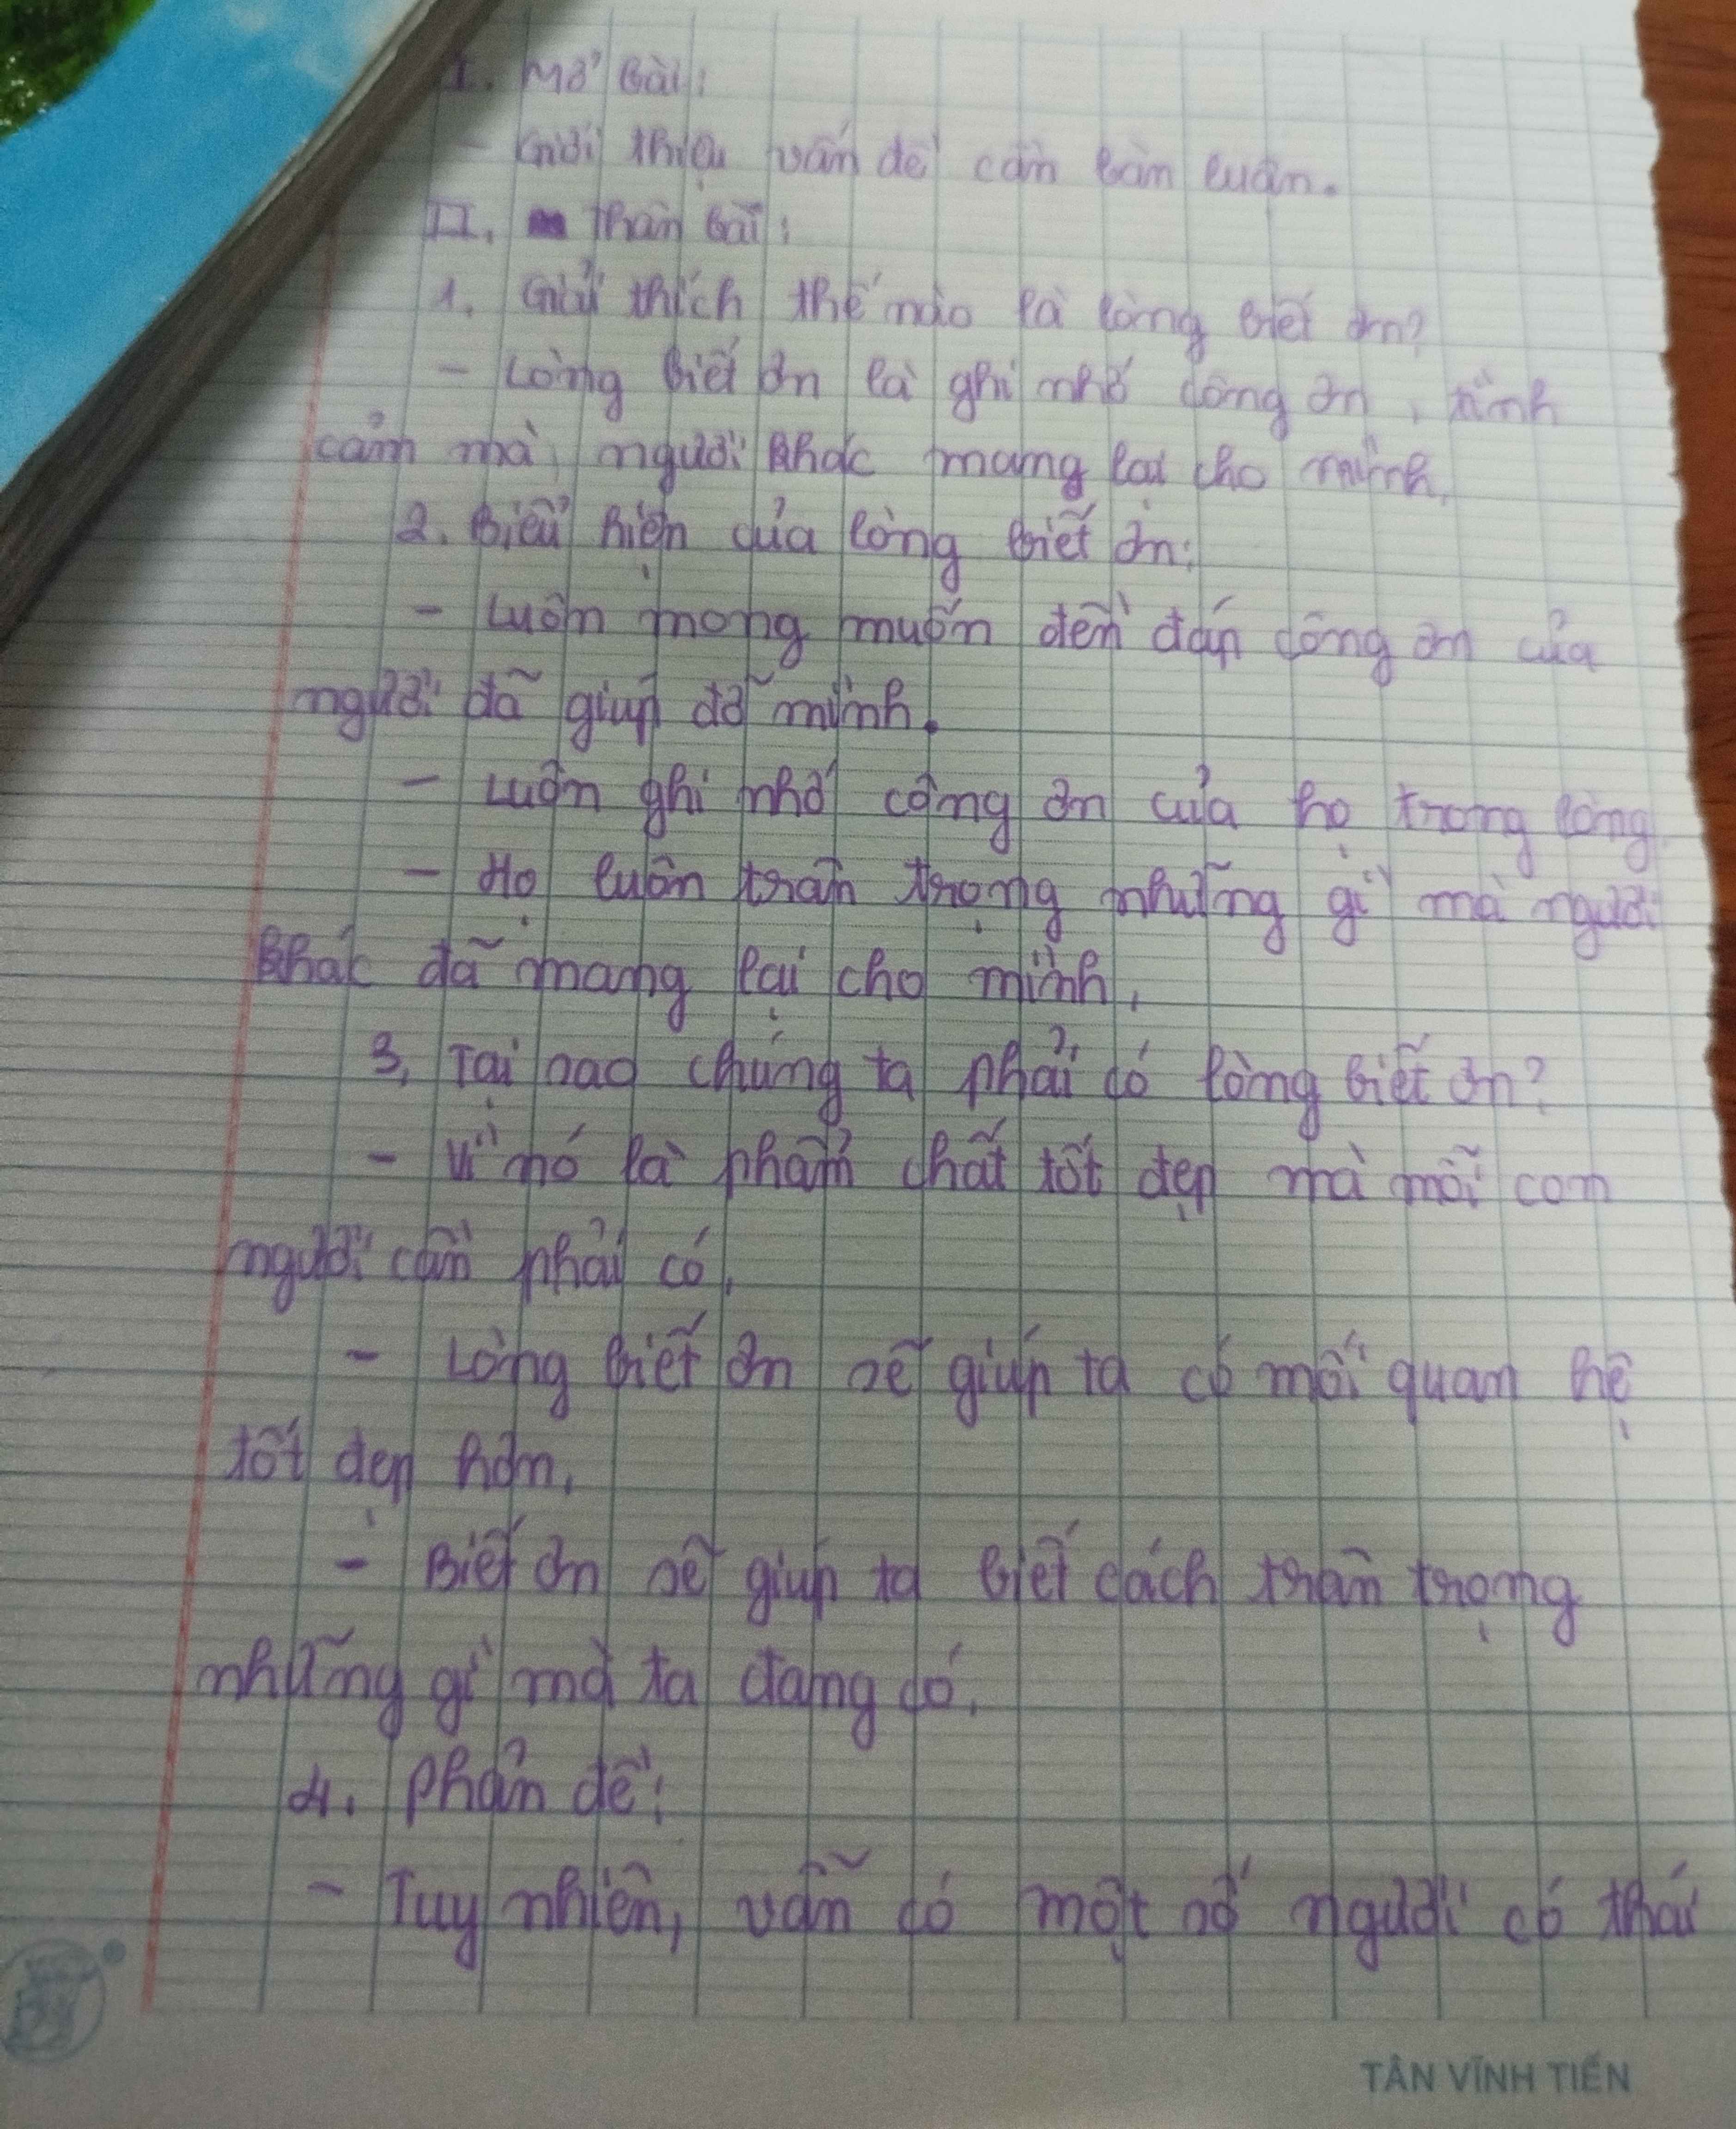 I. Mở bài:
- Giới thiệu vấn đề cần bàn luận.
II. Thân bài:
1. Giải thích thế nào là lòng biết ơn?
- Lòng biết ơn là ghi nhớ công ơn, tình
cảm mà người khác mang lại cho mình.
2. Biểu hiện của lòng biết ơn:
- Luôn mong muốn đền đáp công ơn của
người đã giúp đỡ mình.
- Luôn ghi nhớ công ơn của họ trong lòng
- Họ luôn trân trọng những gì mà người
khác đã mang lại cho mình.
3. Tại sao chúng ta phải có lòng biết ơn?
- Vì nó là phẩm chất tốt đẹp mà mỗi con
người cần phải có.
- Lòng biết ơn sẽ giúp ta có mối quan hệ
tốt đẹp hơn.
- Biết ơn sẽ giúp ta biết cách trân trọng
những gì mà ta đang có.
4. Phản đề:
- Tuy nhiên, vẫn có một số người có thái
TÂN VĨNH TIẾN